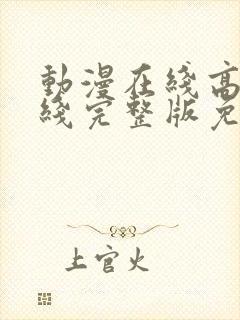 動漫在綫高
綫完整版免
上官火